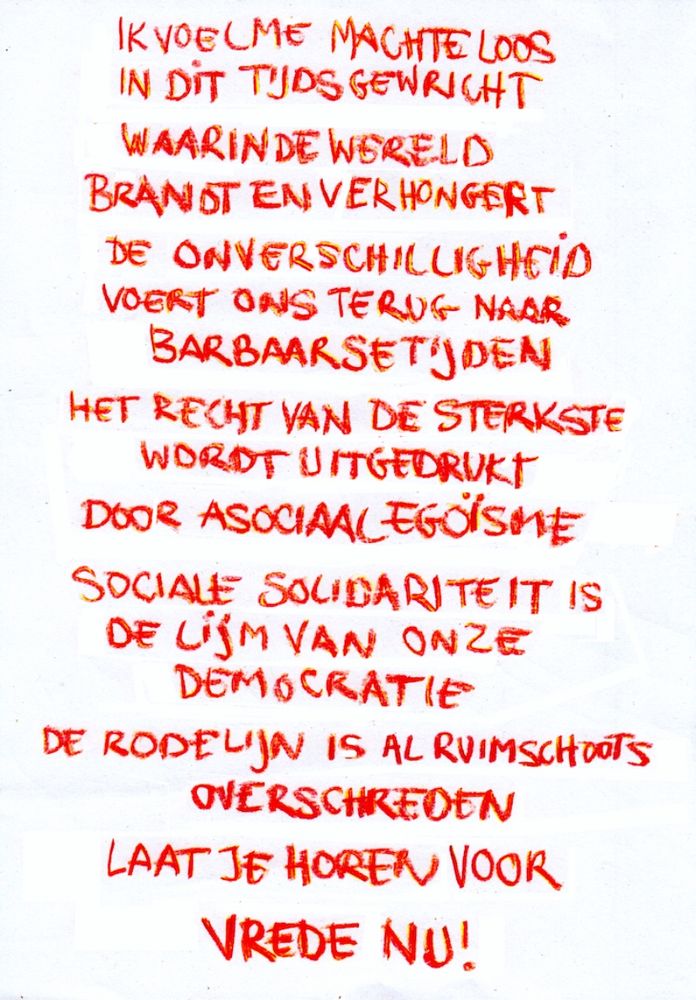 IK VOEL ME MACHTELOOS
IN DIT TIJDSGEWRICHT
WAARIN DE WERELD
BRANDT EN VERHONGERT
DE ONVERSCHILLIGHEID
VOERT ONS TERUG NAAR
BARBAARSE TIJDEN
HET RECHT VAN DE STERKSTE
WORDT UITGEDRUKT
DOOR ASOCIAAL EGOÏSME
SOCIALE SOLIDARITEIT IS
DE LIJM VAN ONZE
DEMOCRATIE
DE RODE LIJN IS AL RUIMSCHOOTS
OVERSCHREDEN
LAAT JE HOREN VOOR
VREDE NU!